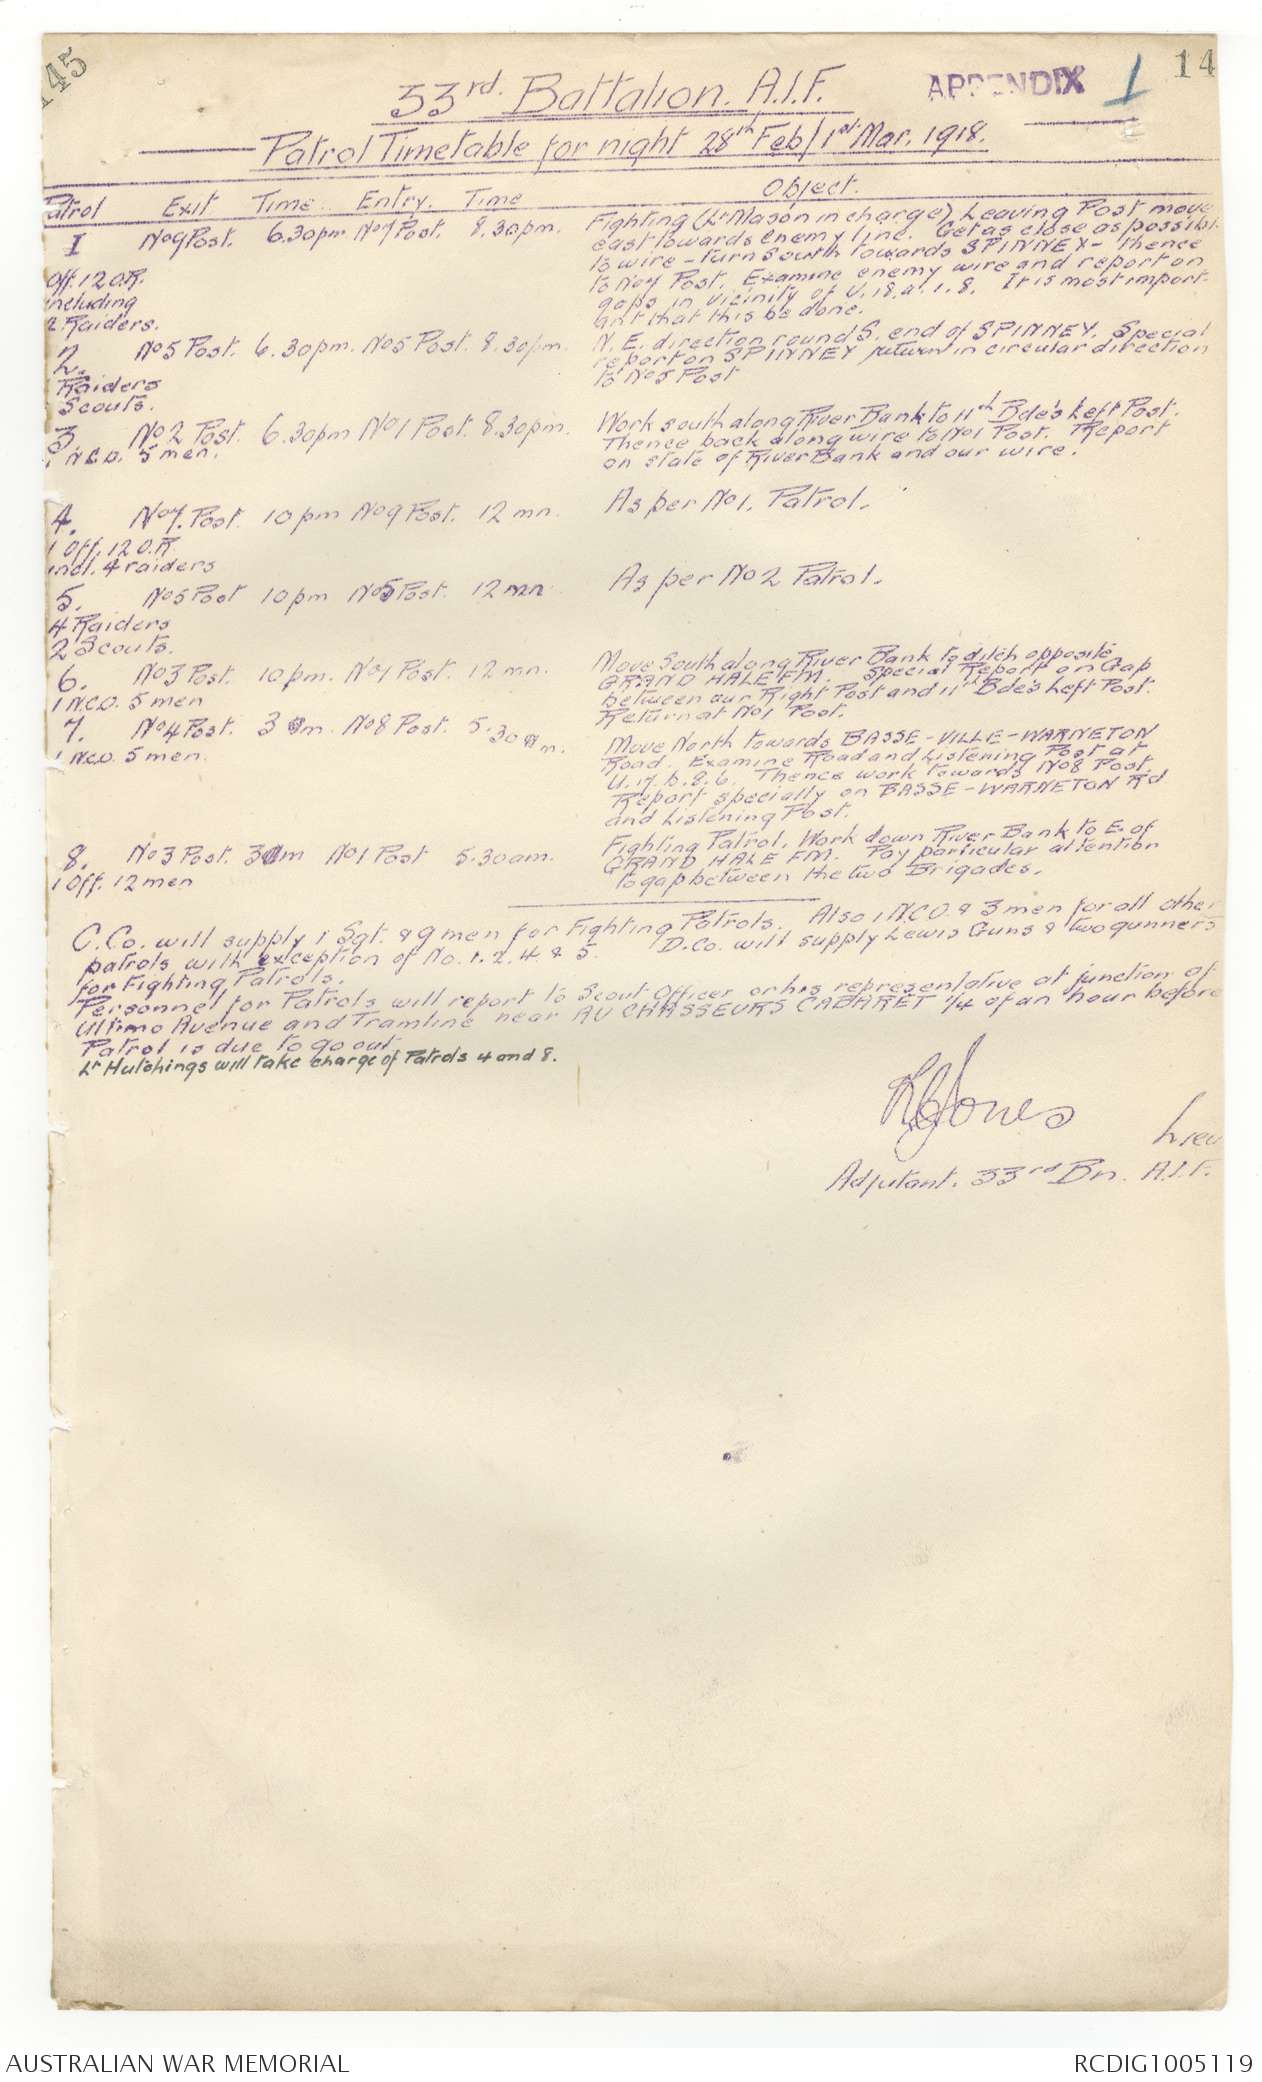 145
14
APPENDIX 1
33rd. Battalion. A.I.F.
Patrol Timetable for night 28th Feb/1st Mar. 1918.
Patrol Exit Time Entry. Time Object.
1 No 9 Post. 6.30pm No 7 Post. 8.30pm. Fighting (Lt Mason in charge) Leaving Post move
east towards enemy line. Get as close as possibl
to wire - turn South towards SPINNEY - thence
Off. 12 O.R. to No 7 Post. Examine enemy wire and report on
including gaps in vicinity of U.18.a.1.8. It is most import-
2 Raiders. ant that this be done.
2. No 5 Post. 6.30pm. No 5 Post. 8.30pm. N.E. direction round S. end of SPINNEY. Special
Raiders report on SPINNEY return in circular direction
Scouts. to No 5 Post
3 No 2 Post. 6.30pm No 1 Post. 8.30pm. Work south along River Bank to 11th Bde's Left Post.
1 N.C.O. 5 men. Thence back along wire to No 1 Post. Report
on state of River Bank and our wire.
4. No 7. Post. 10pm No 9 Post. 12 mn. As per No 1. Patrol.
1 Off. 12 O.R.
incl. 4 raiders
5. No 5 Post 10pm No 5 Post. 12 mn. As per No 2 Patrol.
4 Raiders
2 Scouts.
6. No 3 Post. 10pm. No 1 Post. 12 mn. Move South along River Bank to ditch opposite
1 N.C.O. 5 men GRAND HALE FM. Special Report on Gap
between our Right Post and 11th Bde's Left Post.
Return at No 1 Post.
7. No 4 Post. 3 am. No 8 Post. 5.30 am. Move North towards BASSE-VILLE-WARNETON
1 N.C.O. 5 men. Road. Examine Road and Listening Post at
U.17.b.8.6. Thence work towards No 8 Post.
Report specially on BASSE-WARNETON Rd
and Listening Post.
8. No 3 Post. 3 am No 1 Post 5.30am. Fighting Patrol. Work down River Bank to E. of
1 Off. 12 men GRAND HALE FM. Pay particular attention
to gap between the two Brigades.
C.Co. will supply 1 Sgt. & 9 men for Fighting Patrols. Also 1 N.C.O. & 3 men for all other
patrols with exception of No. 1. 2. 4 & 5. D.Co. will supply Lewis Guns & two gunners
for Fighting Patrols.
Personnel for Patrols will report to Scout Officer or his representative at junction of
Ultimo Avenue and Tramline near AU CHASSEURS CABARET 1/4 of an hour before
Patrol is due to go out.
Lt Hutchings will take charge of Patrols 4 and 8.
Jones
Lieu
Adjutant. 33rd Bn. A.I.F.
AUSTRALIAN WAR MEMORIAL RCDIG1005119